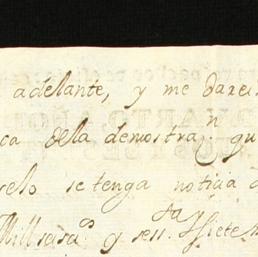 adelante, y me dareis
ca dela demostran qu
selo se tenga noticia
Mill sas.os y sess.ta y siete